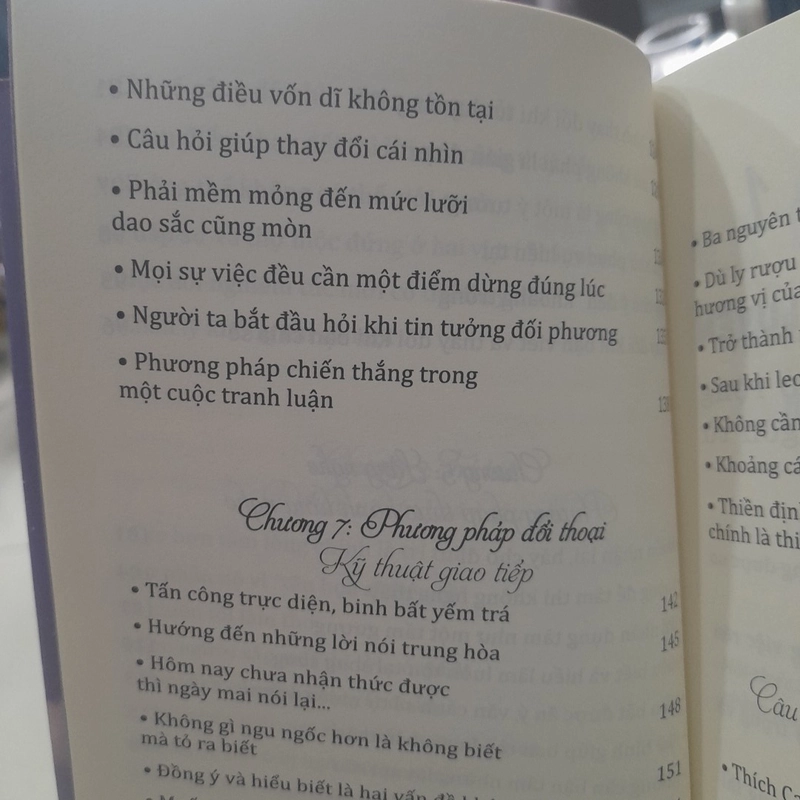 • Những điều vốn dĩ không tồn tại
• Câu hỏi giúp thay đổi cái nhìn
• Phải mềm mỏng đến mức lưỡi
dao sắc cũng mòn
• Mọi sự việc đều cần một điểm dừng đúng lúc
• Người ta bắt đầu hỏi khi tin tưởng đối phương
• Phương pháp chiến thắng trong
một cuộc tranh luận
Chương 7: Phương pháp đối thoại
Kỹ thuật giao tiếp
• Tấn công trực diện, binh bất yếm trá 142
• Hướng đến những lời nói trung hòa 145
• Hôm nay chưa nhận thức được
thì ngày mai nói lại... 148
• Không gì ngu ngốc hơn là không biết
mà tỏ ra biết 151
• Đồng ý và hiểu biết là hai vấn đề
• Ba nguyên
• Dù ly rượu
hương vị của
• Trở thành
• Sau khi leo
• Không cần
• Khoảng
• Thiền
chính là
Câu
• Thích